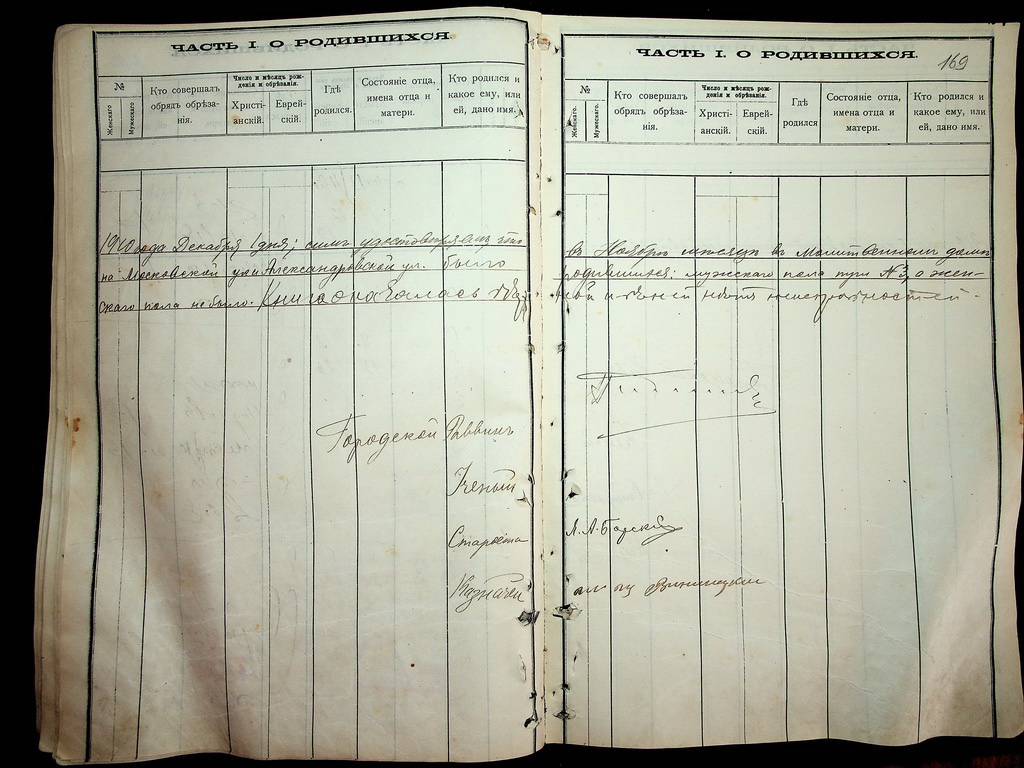 ЧАСТЬ I. О РОДИВШИХСЯ.
№
Женскаго.
Мужескаго.
Кто совершалъ обрядъ обрѣзанія.
Число и мѣсяцъ рожденія и обрѣзанія.
Христіанскій.
Еврейскій.
Гдѣ родился.
Состояніе отца, имена отца и матери.
Кто родился и какое ему, или ей, дано имя.
1910 года Декабря 1 дня; симъ удостовѣряемъ что
на Московской ули Александровской ул. было
скаго пола не было. Книга оказалась
Городской Раввинъ
Ученый
Староста
Казначей
ЧАСТЬ I. О РОДИВШИХСЯ.
169
№
Женскаго.
Мужескаго.
Кто совершалъ обрядъ обрѣзанія.
Число и мѣсяцъ рожденія и обрѣзанія.
Христіанскій.
Еврейскій.
Гдѣ родился
Состояніе отца, имена отца и матери.
Кто родился и какое ему, или ей, дано имя.
въ Ноябрѣ мѣсяцѣ въ Молитвенномъ домѣ
родившихся: мужскаго пола три №3, а жен-
и въ ней нѣтъ неисправностей.
Я. А. Барскій
Винницкий